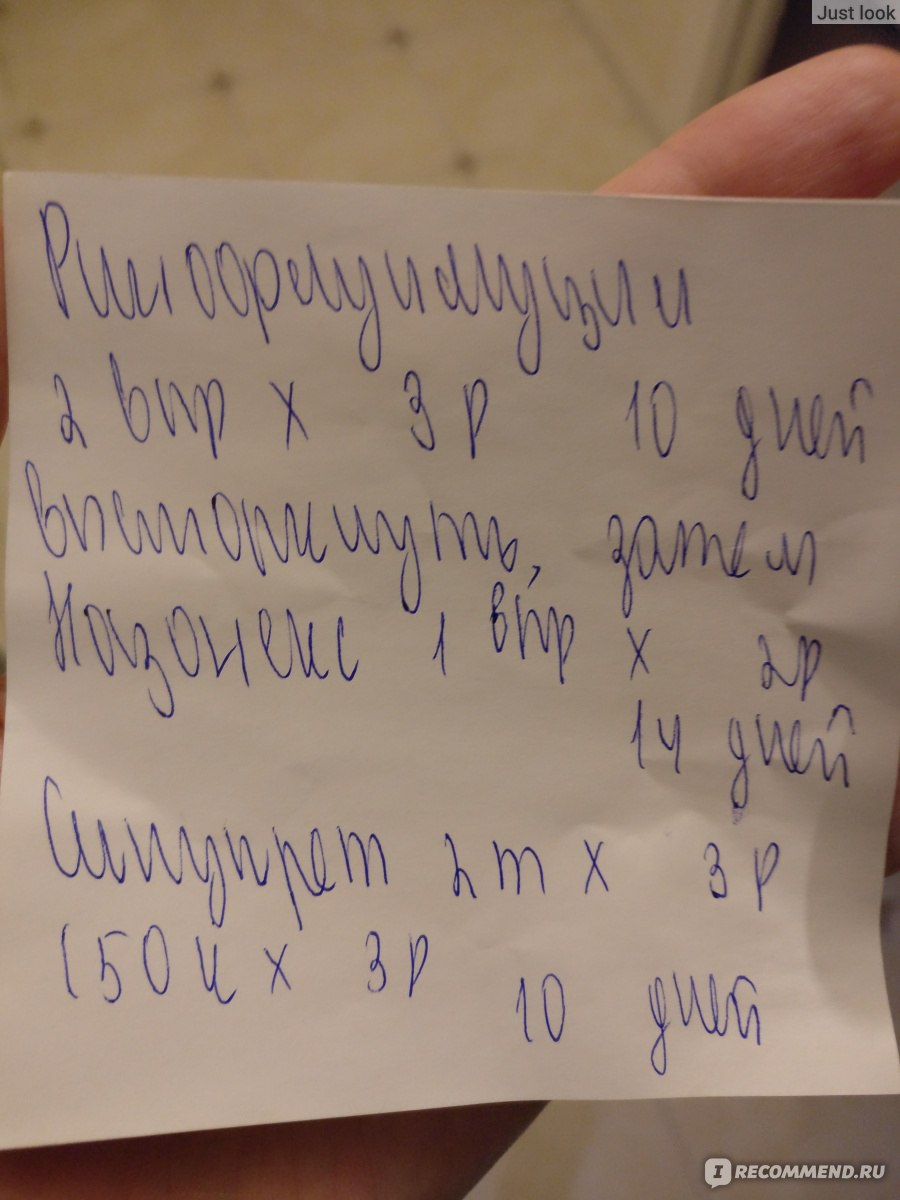 Just look
Ринофлуимуцил
2 впр х 3 р 10 дней
высморкнуть, затем
Назонекс 1 впр х 2р
14 дней
Синупрет 2 т х 3 р
(50 к х 3 р
10 дней
IRECOMMEND.RU